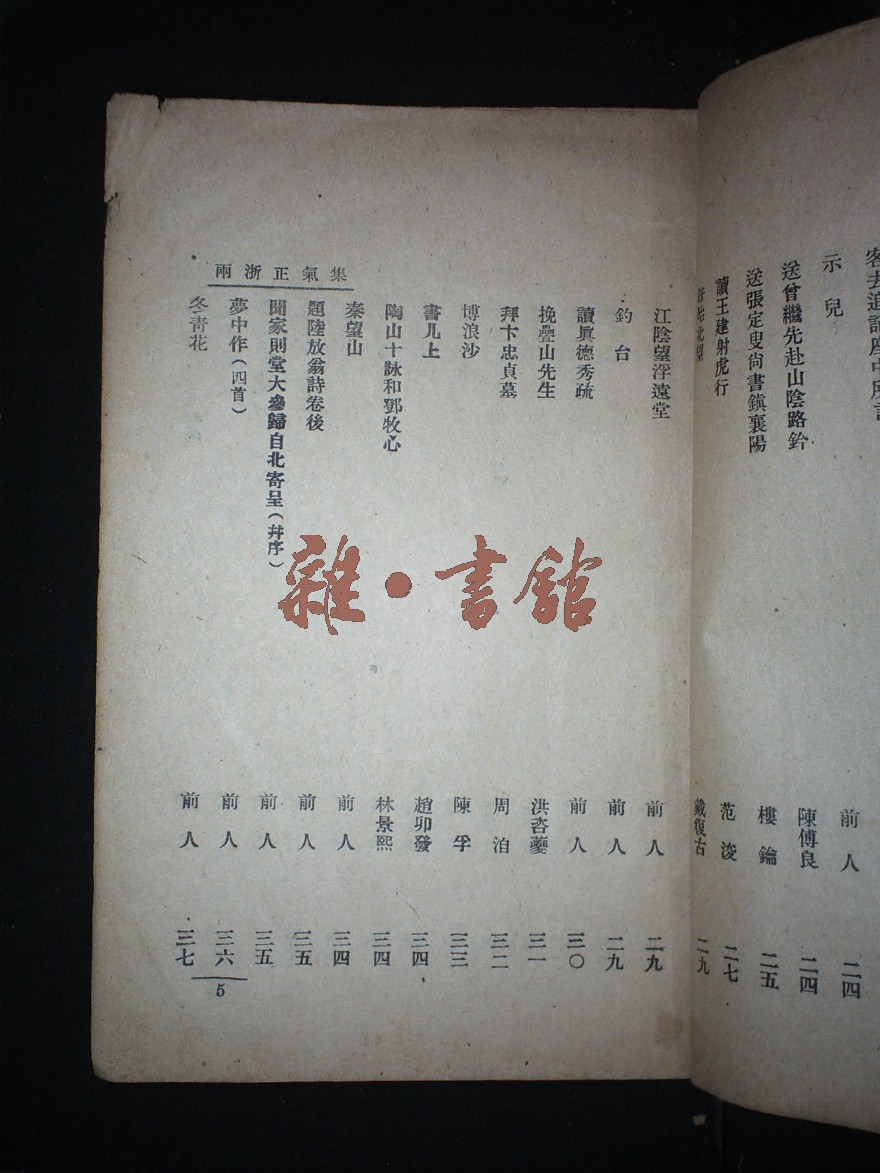 客去追記座中所
示兒 前人 二四
送曾繼先赴山陰路鈐 陳傅良 二四
送張定叟尙書鎭襄陽 樓鑰 二五
讀王建射虎行 范浚 二七
盱眙北望 戴復古 二九
江陰望浮遠堂 前人 二九
釣台 前人 二九
讀眞德秀疏 前人 三〇
挽疊山先生 洪咨夔 三一
拜卞忠貞墓 周泊 三二
博浪沙 陳孚 三三
書几上 趙卯發 三四
陶山十詠和鄧牧心 林景熙 三四
秦望山 前人 三四
題陸放翁詩卷後 前人 三五
聞家則堂大參歸自北寄呈(幷序) 前人 三五
夢中作(四首) 前人 三六
冬青花 前人 三七
兩浙正氣集
5
雜·書館